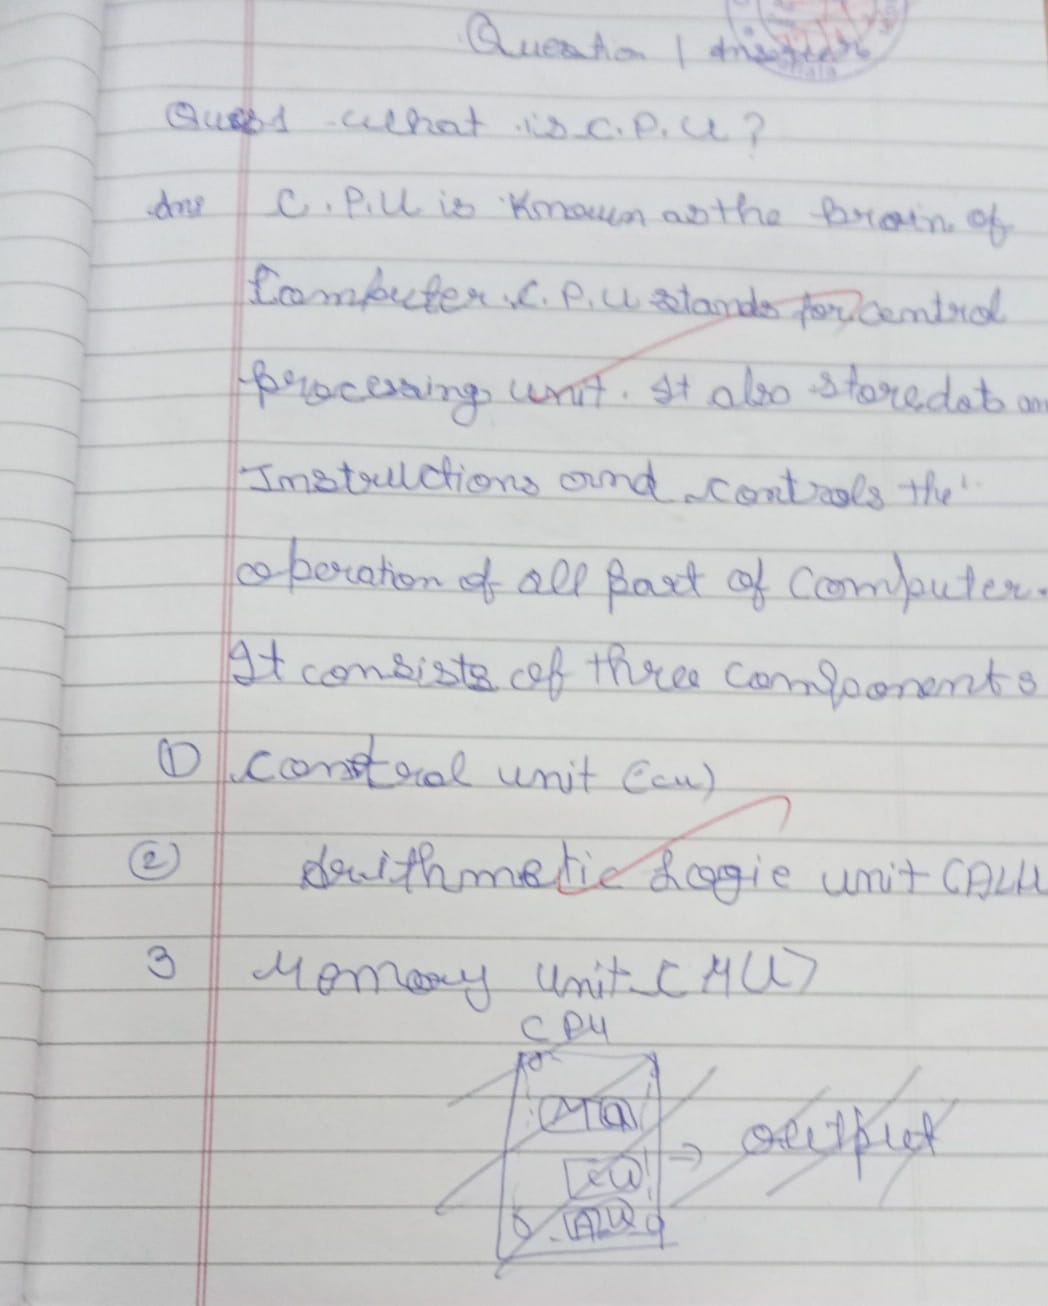 Question / Answers
Ques1 What is C.P.U?
Ans C.P.U is known as the brain of
Computer. C.P.U stands for central
processing unit. It also store data an
Instructions and controls the
operation of all part of computer.
It consists of three components
① Control unit (cu)
② Arithmetic Logic unit (ALU
3 Memory Unit (MU)
CPU
MU
CU → output
ALU